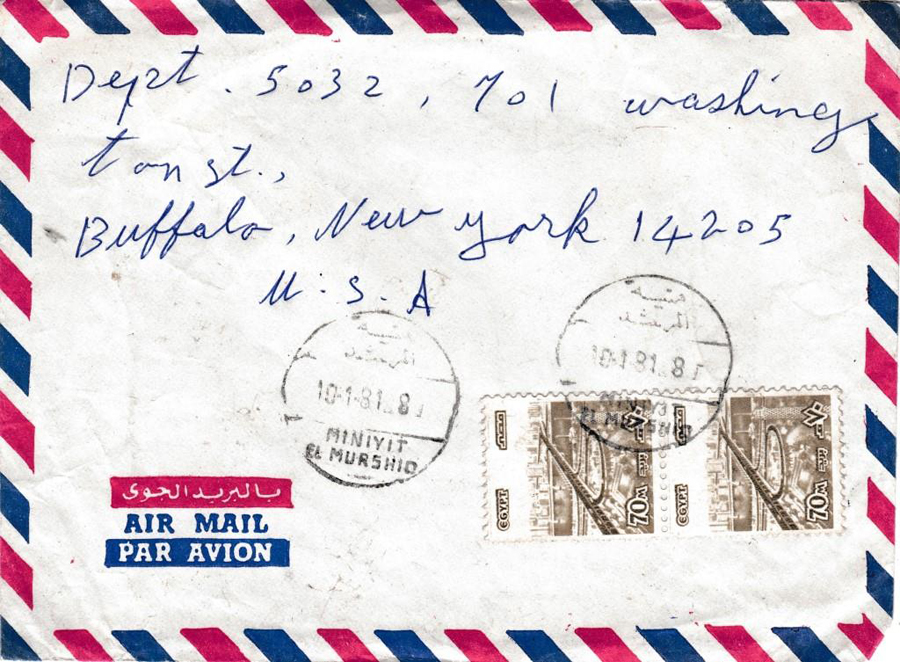 Dept. 5032, 701 washing
ton st.,
Buffalo, New york 14205
U.S.A
منية
المرشد
10-1-81..8
MINIYIT
EL MURSHID
منية
المرشد
10-1-81..8
MINIYIT
EL MURSHID
بالبريد الجوى
AIR MAIL
PAR AVION
مصر
٧٠
70M
EGYPT
مصر
٧٠
70M
EGYPT